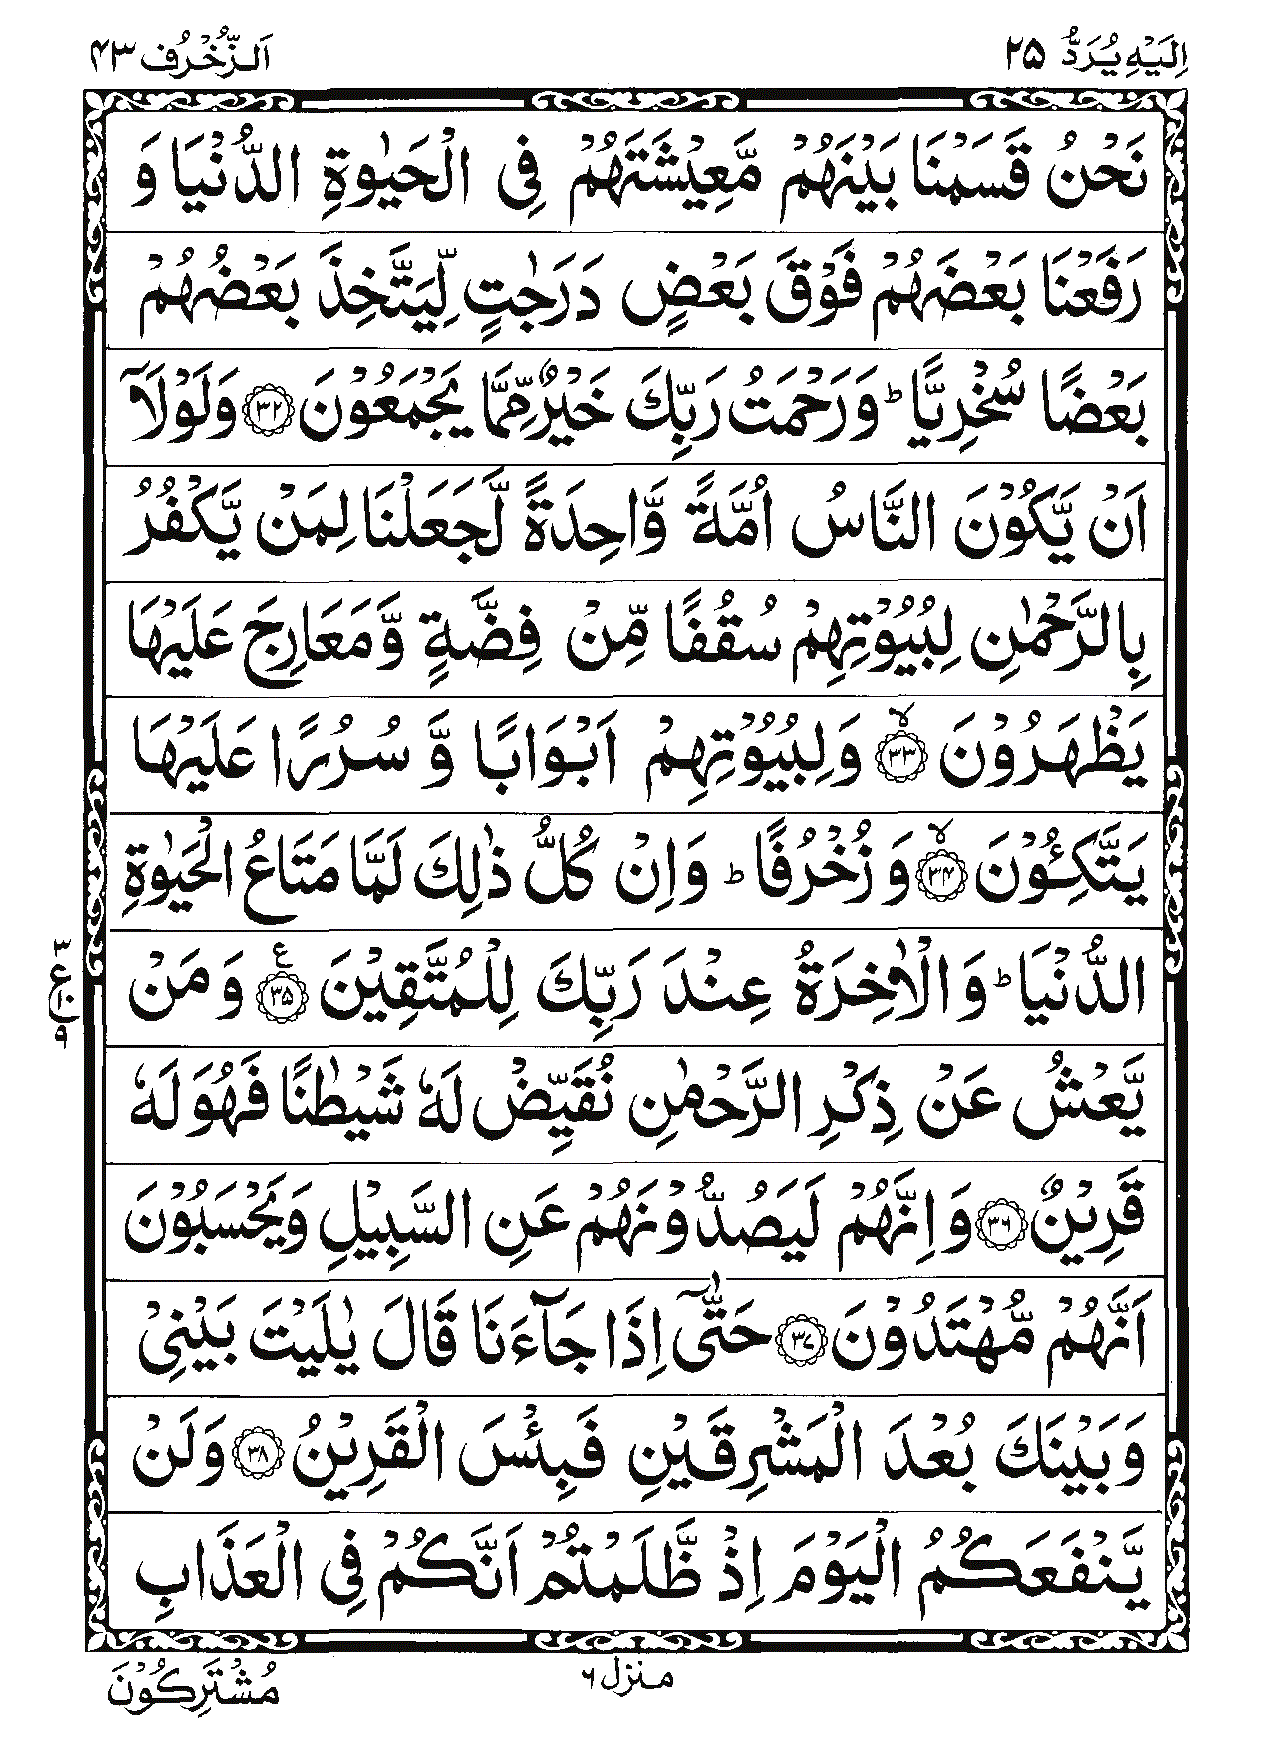 اِلَيْهِ يُرَدُّ ٢٥
اَلزُّخْرُف ٤٣
نَحْنُ قَسَمْنَا بَيْنَهُمْ مَّعِيْشَتَهُمْ فِى الْحَيٰوةِ الدُّنْيَا وَ
رَفَعْنَا بَعْضَهُمْ فَوْقَ بَعْضٍ دَرَجٰتٍ لِّيَتَّخِذَ بَعْضُهُمْ
بَعْضًا سُخْرِيًّا ؕ وَرَحْمَتُ رَبِّكَ خَيْرٌ مِّمَّا يَجْمَعُوْنَ ﴿٣٢﴾ وَلَوْلَاۤ
اَنْ يَّكُوْنَ النَّاسُ اُمَّةً وَّاحِدَةً لَّجَعَلْنَا لِمَنْ يَّكْفُرُ
بِالرَّحْمٰنِ لِبُيُوْتِهِمْ سُقُفًا مِّنْ فِضَّةٍ وَّمَعَارِجَ عَلَيْهَا
يَظْهَرُوْنَ ۙ﴿٣٣﴾ وَلِبُيُوْتِهِمْ اَبْوَابًا وَّ سُرُرًا عَلَيْهَا
يَتَّكِـُٔوْنَ ۙ﴿٣٤﴾ وَ زُخْرُفًا ؕ وَاِنْ كُلُّ ذٰلِكَ لَمَّا مَتَاعُ الْحَيٰوةِ
الدُّنْيَا ؕ وَ الْاٰخِرَةُ عِنْدَ رَبِّكَ لِلْمُتَّقِيْنَ ﴿٣٥﴾ ع وَ مَنْ
٣
ع
١٠
٩
يَّعْشُ عَنْ ذِكْرِ الرَّحْمٰنِ نُقَيِّضْ لَهٗ شَيْطٰنًا فَهُوَ لَهٗ
قَرِيْنٌ ﴿٣٦﴾ وَ اِنَّهُمْ لَيَصُدُّوْنَهُمْ عَنِ السَّبِيْلِ وَيَحْسَبُوْنَ
اَنَّهُمْ مُّهْتَدُوْنَ ﴿٣٧﴾ حَتّٰۤى اِذَا جَآءَنَا قَالَ يٰلَيْتَ بَيْنِىْ
وَبَيْنَكَ بُعْدَ الْمَشْرِقَيْنِ فَبِئْسَ الْقَرِيْنُ ﴿٣٨﴾ وَلَنْ
يَّنْفَعَكُمُ الْيَوْمَ اِذْ ظَّلَمْتُمْ اَنَّكُمْ فِى الْعَذَابِ
منزل ٦
مُشْتَرِكُوْنَ